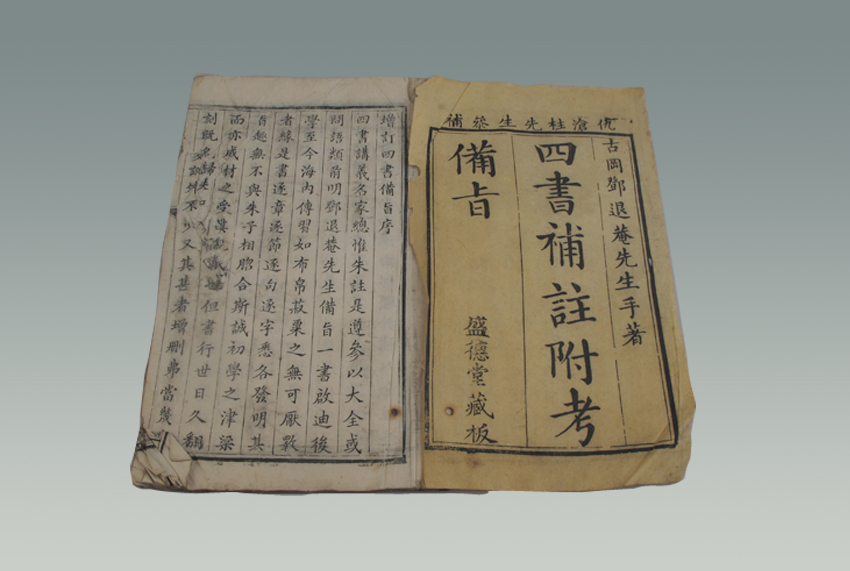 仇滄柱先生纂補
古岡鄧退菴先生手著
四書補註附考
備旨
盛德堂藏板
增訂四書備旨序
四書講義名家總惟朱註是遵參以大全或
問語類前明鄧退菴先生備旨一書啟迪後
學至今海內傳習如布帛菽粟之無可厭斁
者緣是書逐章逐節逐句逐字悉各發明其
旨趣無不與朱子相脗合斯誠初學之津梁
而亦成材之但書行世日久翻
刻既不少又其甚者增刪弗當幾